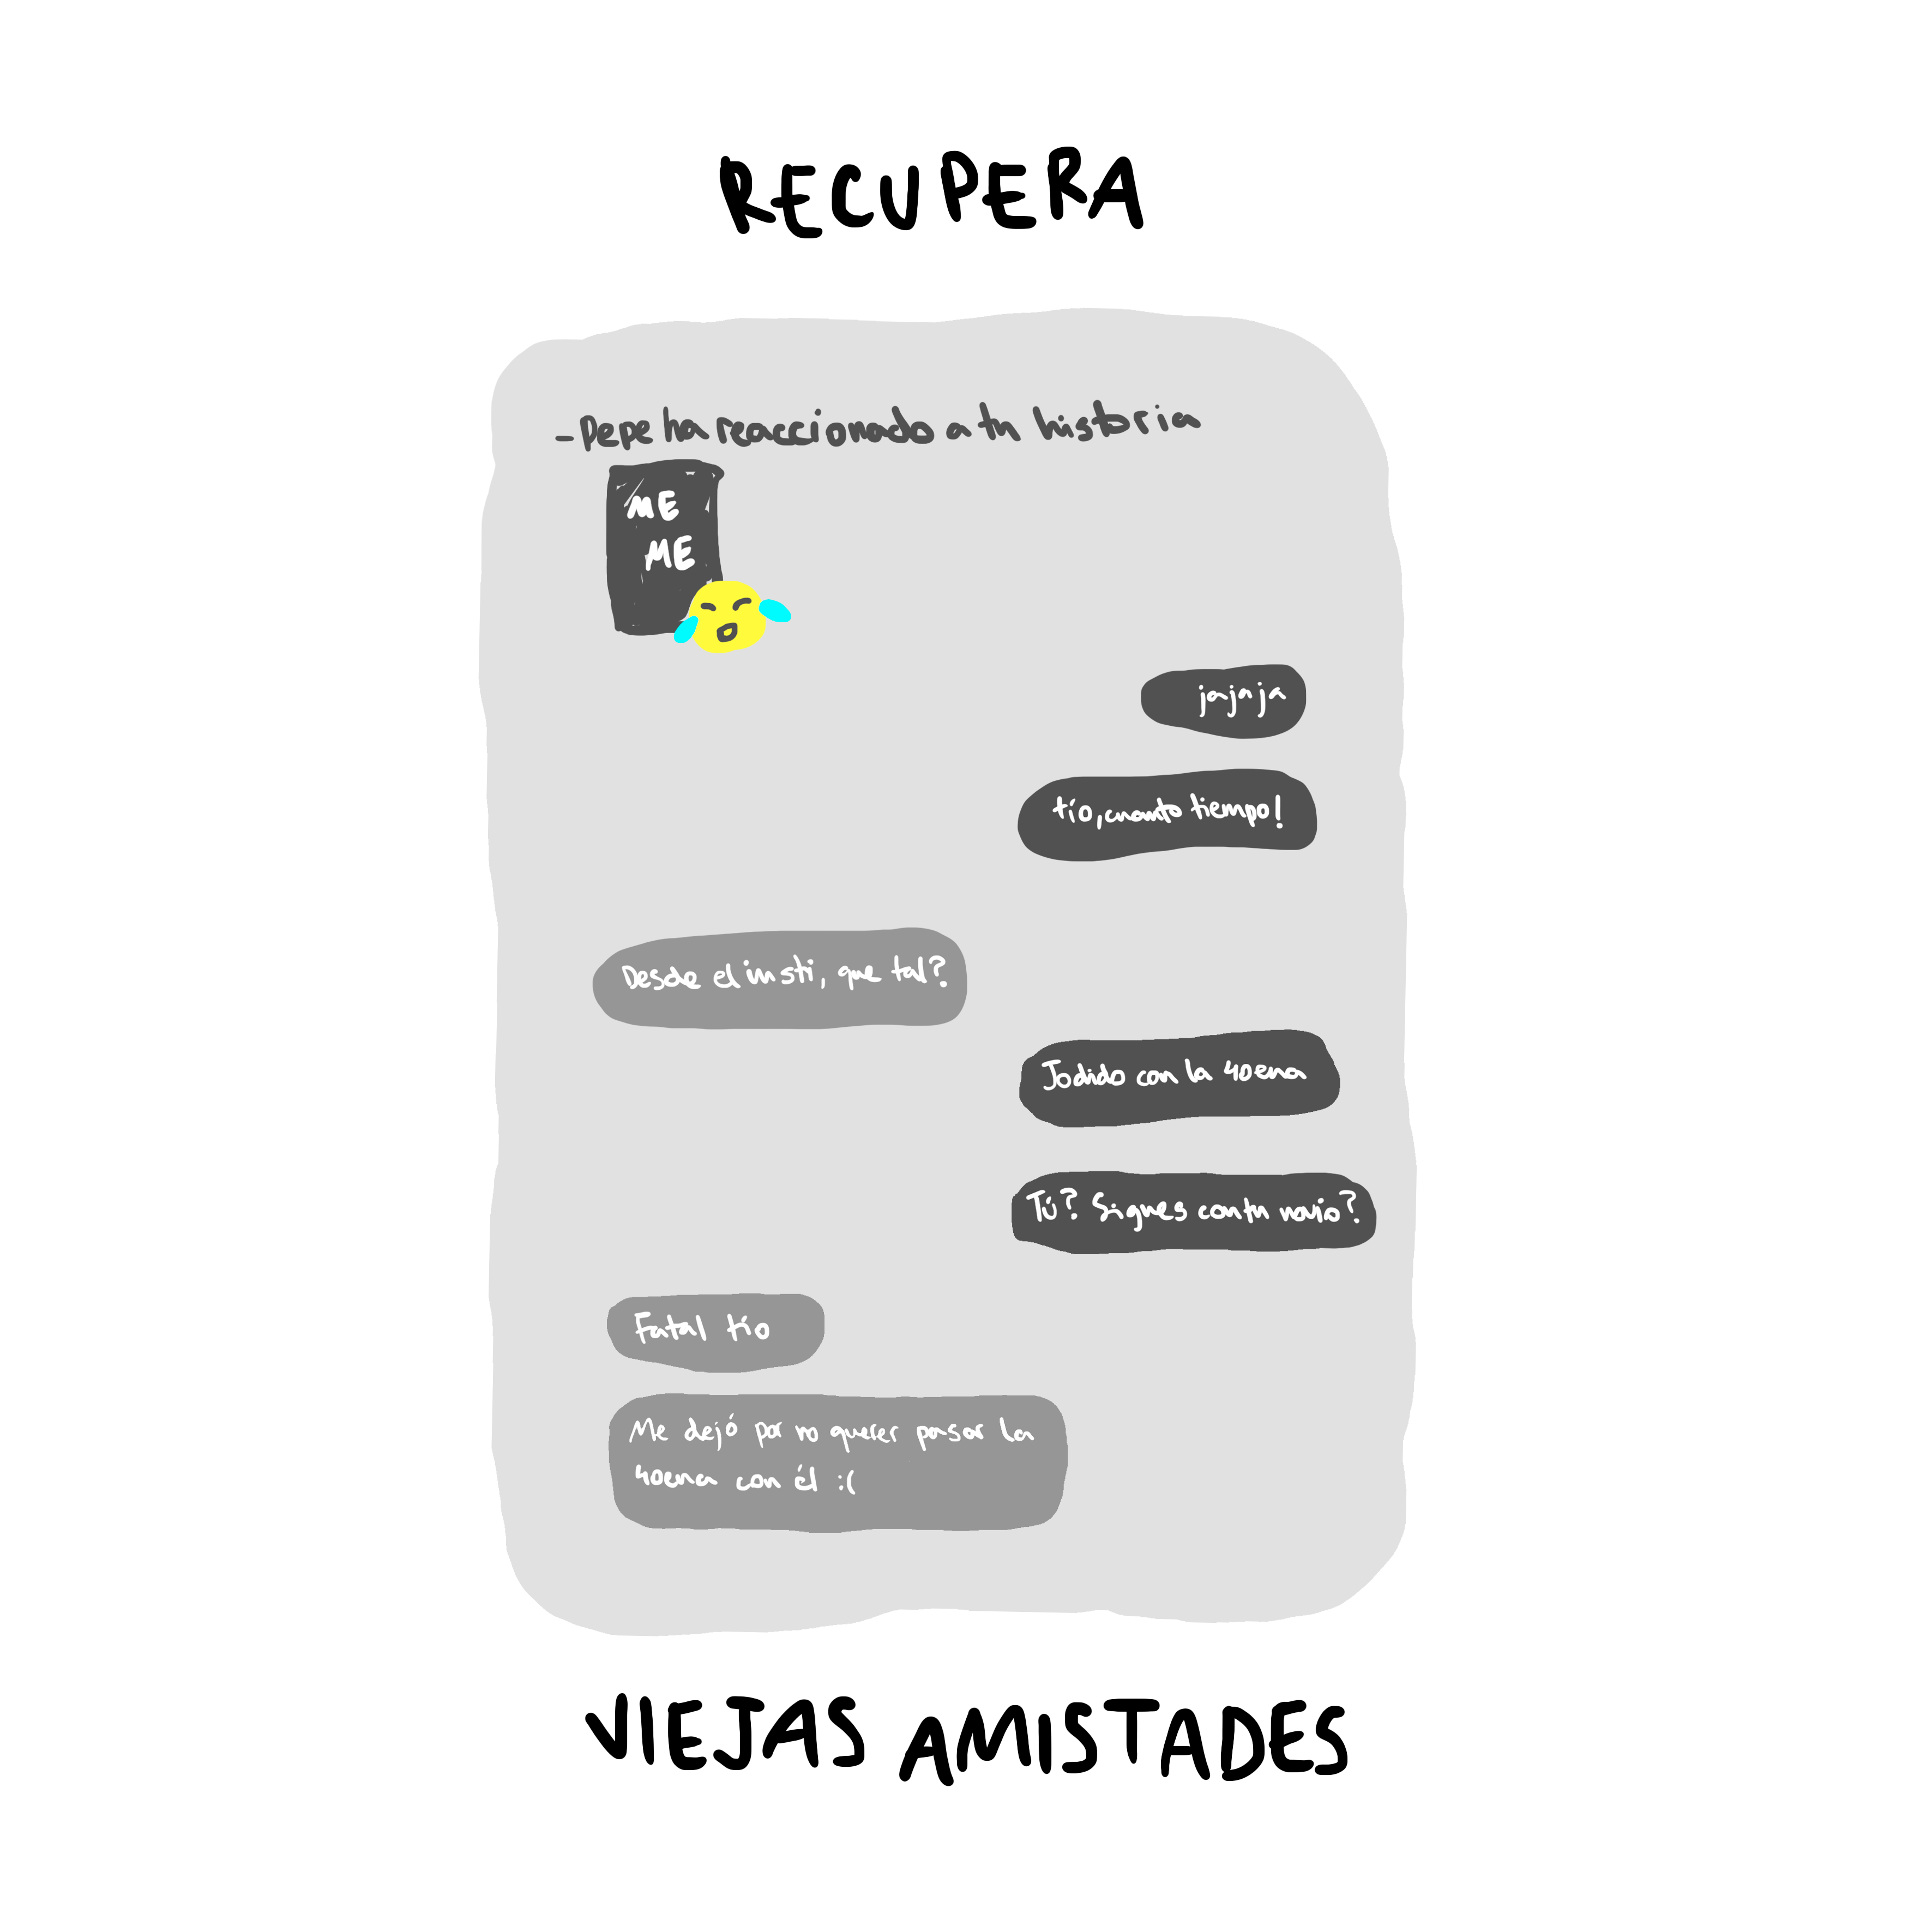 RECUPERA
-Pepe ha Reaccionado a tu historia
ME
ME
jajaja
tío, cuanto tiempo!
Desde el insti, que tal?
Jodido con la 40ena
Tú? Sigues con tu novio?
Fatal tío
Me dejó por no querer pasar la
40ena con él :(
VIEJAS AMISTADES